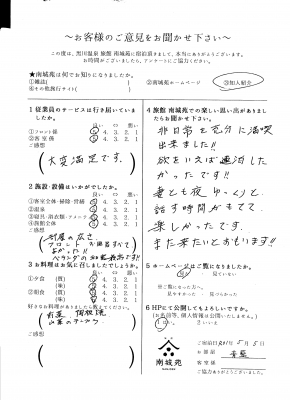 ～お客様のご意見をお聞かせ下さい～
この度は、黒川温泉 旅館 南城苑に宿泊頂きまして、本当にありがとうございます。
お時間がございましたら、アンケートにご協力ください。
★南城苑は何でお知りになりましたか。
①雑誌( )
②南城苑ホームページ
③知人紹介
④その他旅行サイト( )
1 従業員のサービスは行き届いていましたか。
良い ⇔ 悪い
①フロント係 5 4. 3. 2. 1
②客室係 5 4. 3. 2. 1
ご感想
大変満足です.
2 施設・設備はいかがでしたか。
良い ⇔ 悪い
①客室全体・掃除・骨組 5 4. 3. 2. 1
②温泉 5 4. 3. 2. 1
③寝具・浴衣類 5 4. 3. 2. 1
④旅館全体 5 4. 3. 2. 1
ご感想
部屋の広さ
フロント
よかった!!
3 お料理はお気に召しましたでしょうか。
良い ⇔ 悪い
①夕食 (質) 5 4. 3. 2. 1
(味) 5 4. 3. 2. 1
②朝食 (質) 5 4. 3. 2. 1
(味) 5 4. 3. 2. 1
好きなお料理がありましたら教えてください。
ご感想
4 旅館 南城苑での楽しい思い出がありましたらお聞かせください。
非日常を充分に満喫
出来ました!!
欲をいえば連泊した
かったです!!
妻とも夜ゆっくりと
話す時間がもてて
楽しかったです.
また来たいとおもいます!!
5 ホームページはご覧になりましたか。
見た ・ 見ていない
※ご覧になった方へ
見やすかった ・ 見づらかった
6 HPにて公開してもよろしいですか。
(お名前等、個人情報は公開いたしません。)
1 はい 2 いいえ
南城苑
ご宿泊日 R01年 5月 5日
お部屋
客室係
ご協力ありがとうございました。